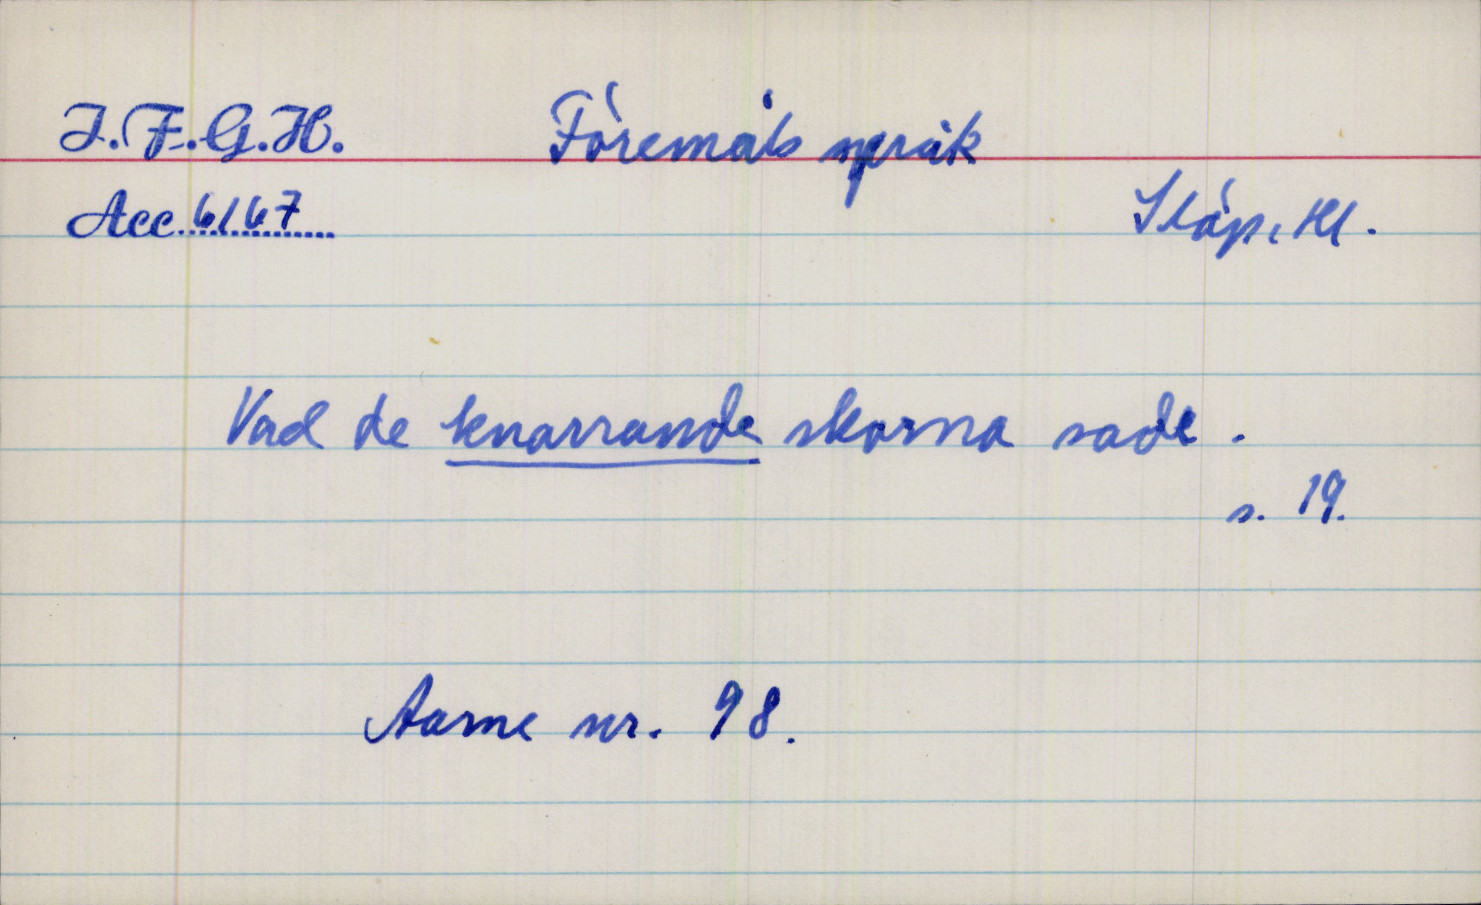 I.F.G.H. Föremåls språk
Acc. 6/67 Släp, Hl.
Vad de knarrande skorna sade.
s. 19.
Aarne nr. 98.